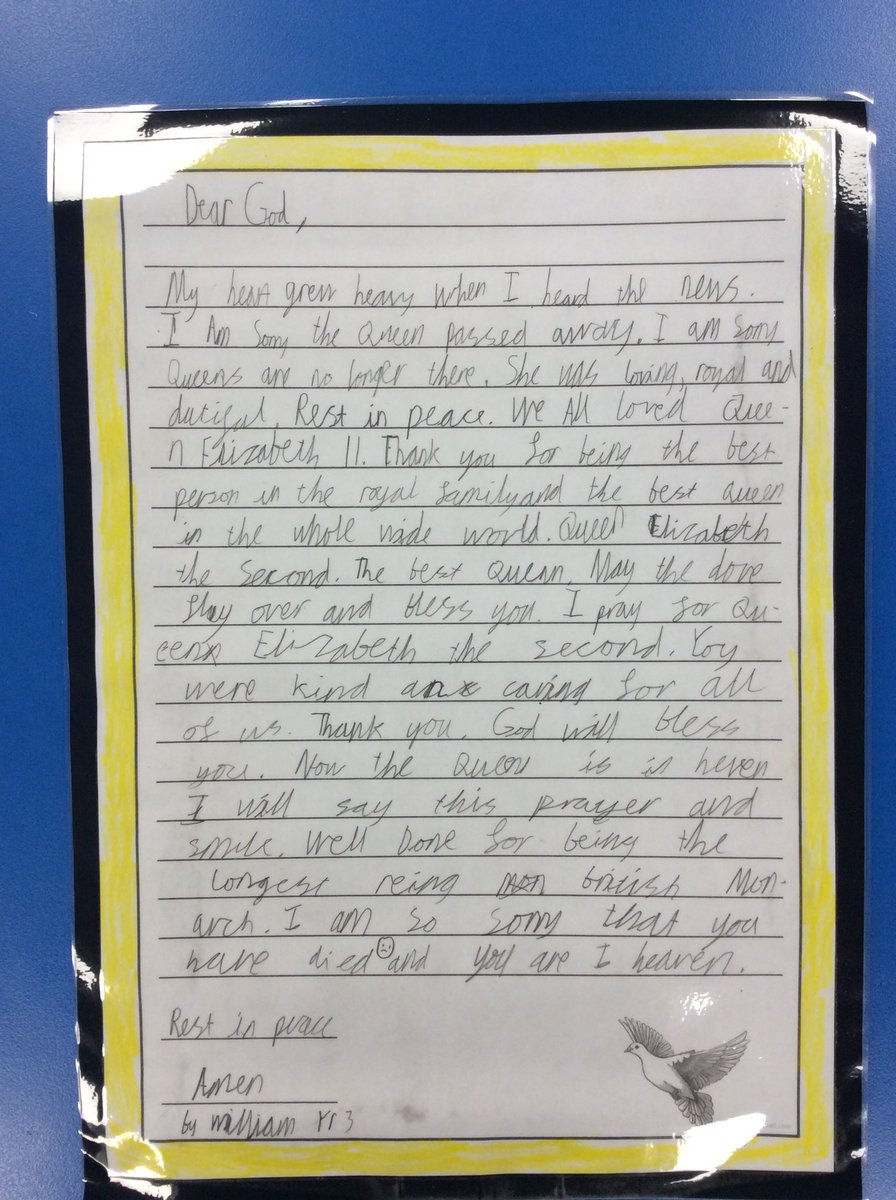 Dear God,
My heart grew heavy when I heard the news.
I Am Sorry the Queen passed away. I am sorry
Queens are no longer there. She was loving, royal and
dutiful. Rest in peace. We All loved Quee-
n Elizabeth II. Thank you for being the best
person in the royal family and the best queen
in the whole wide world. Queen Elizabeth
the Second. The best Queen. May the dove
fly over and bless you. I pray for Qu-
een Elizabeth the second. You
were kind and caring for all
of us. Thank you. God will bless
you. Now the Queen is in heven
I will say this prayer and
smile. Well Done for being the
longest reing british Mon-
arch. I am so sorry that you
have died and you are I heaven.
Rest in peace
Amen
by william Yr 3